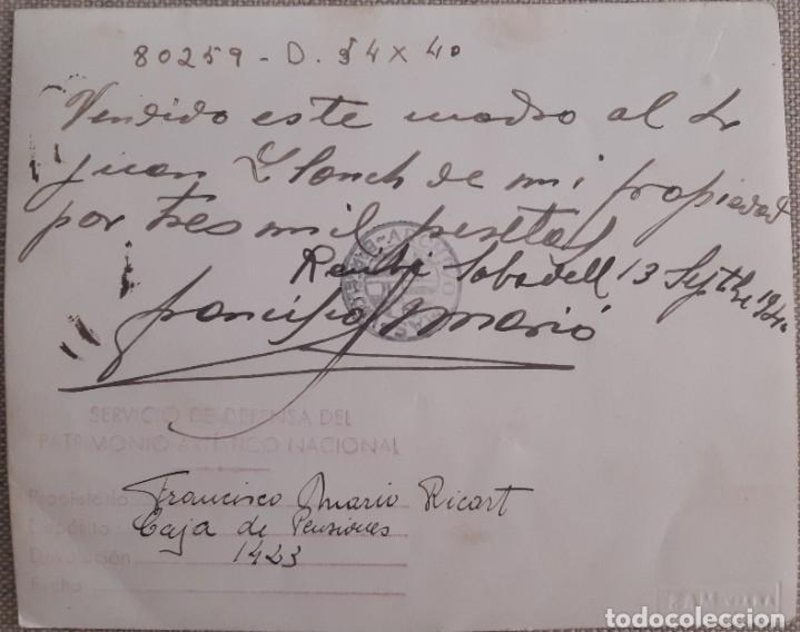 80259 - D. 54 x 40
Vendido este cuadro al Sr
Juan Llonch de mi propiedad
por tres mil pesetas
Sabadell 13 Sepbre 1940
Francisco Marió
SERVICIO DE DEFENSA DEL
PATRIMONIO ARTÍSTICO NACIONAL
Propietario Francisco Mario Ricart
Depósito Caja de Pensiones
Devolución 1423
Fecha
todocoleccion